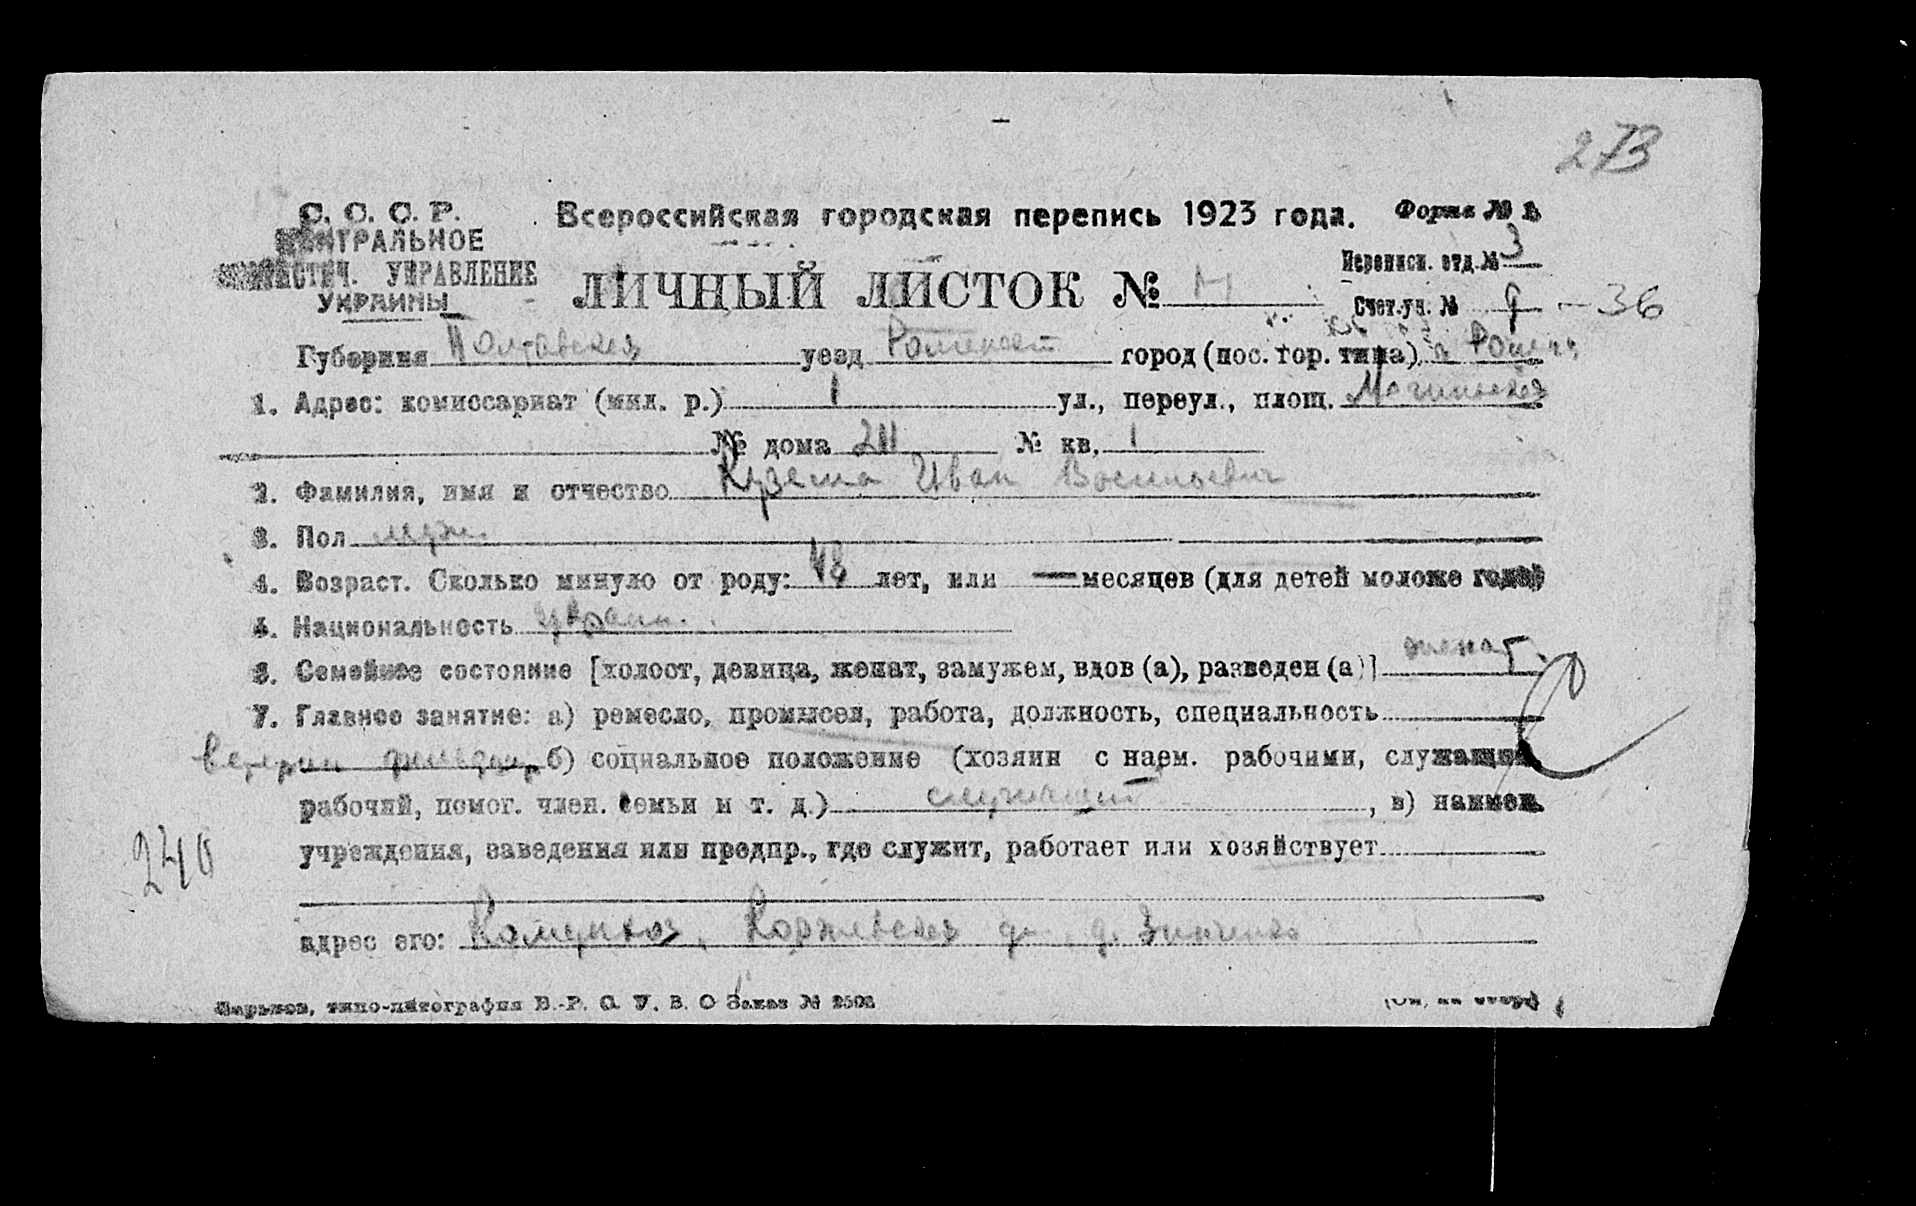 273
С. С. С. Р.
ЦЕНТРАЛЬНОЕ
СТАТИСТИЧ. УПРАВЛЕНИЕ
УКРАИНЫ
Всероссийская городская перепись 1923 года.
Форма № 1
ЛИЧНЫЙ ЛИСТОК №
Переписн. отд. № 3
Счет. уч. № 9 - 36
Губерния Полтавская уезд Роменский город (пос. гор. типа) г. Ромны
1. Адрес: комиссариат (мил. р.) 1 ул., переул., площ.
№ дома № кв. 1
2. Фамилия, имя и отчество Кузема Иван Васильевич
3. Пол муж.
4. Возраст. Сколько минуло от роду: 48 лет, или — месяцев (для детей моложе года)
5. Национальность украин.
6. Семейное состояние [холост, девица, женат, замужем, вдов (а), разведен (а)] женат.
7. Главное занятие: а) ремесло, промысел, работа, должность, специальность
ветерин фельдшер б) социальное положение (хозяин с наем. рабочими, служащий,
рабочий, помог. член. семьи и т. д.) служащий , в) наимен.
учреждения, заведения или предпр., где служит, работает или хозяйствует
адрес его: Комунхоз, д. Зинченко
240
Харьков, типо-литография В.-Р. О. У. В. О Заказ № 2503